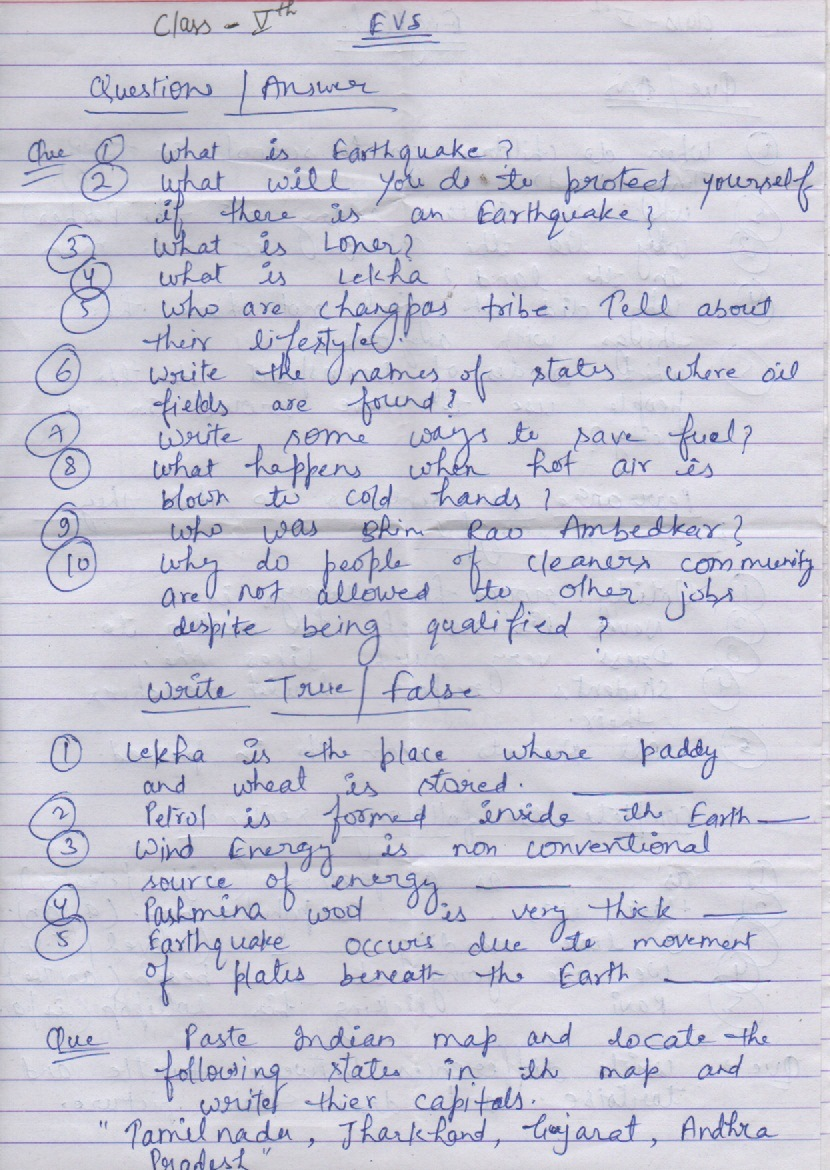 Class - Vth EVS
Question / Answer
Que 1 What is Earthquake?
2 What will you do to protect yourself
if there is an Earthquake?
3 What is Loner?
4 what is Lekha
5 who are changpas tribe. Tell about
their lifestyle.
6 Write the names of states where oil
fields are found?
7 Write some ways to save fuel?
8 what happens when hot air is
blown to cold hands?
9 who was Bhim Rao Ambedkar?
10 Why do people of cleaners community
are not allowed to other jobs
despite being qualified?
Write True / False
1 Lekha is the place where paddy
and wheat is stored. ____
2 Petrol is formed inside th Earth ____
3 Wind Energy is non conventional
source of energy ____
4 Pashmina wool is very thick ____
5 Earthquake occurs due to movement
of plates beneath the Earth ____
Que Paste Indian map and locate the
following states in th map and
write thier capitals.
"Tamil nadu, Jharkhand, Gujarat, Andhra
Pradesh"